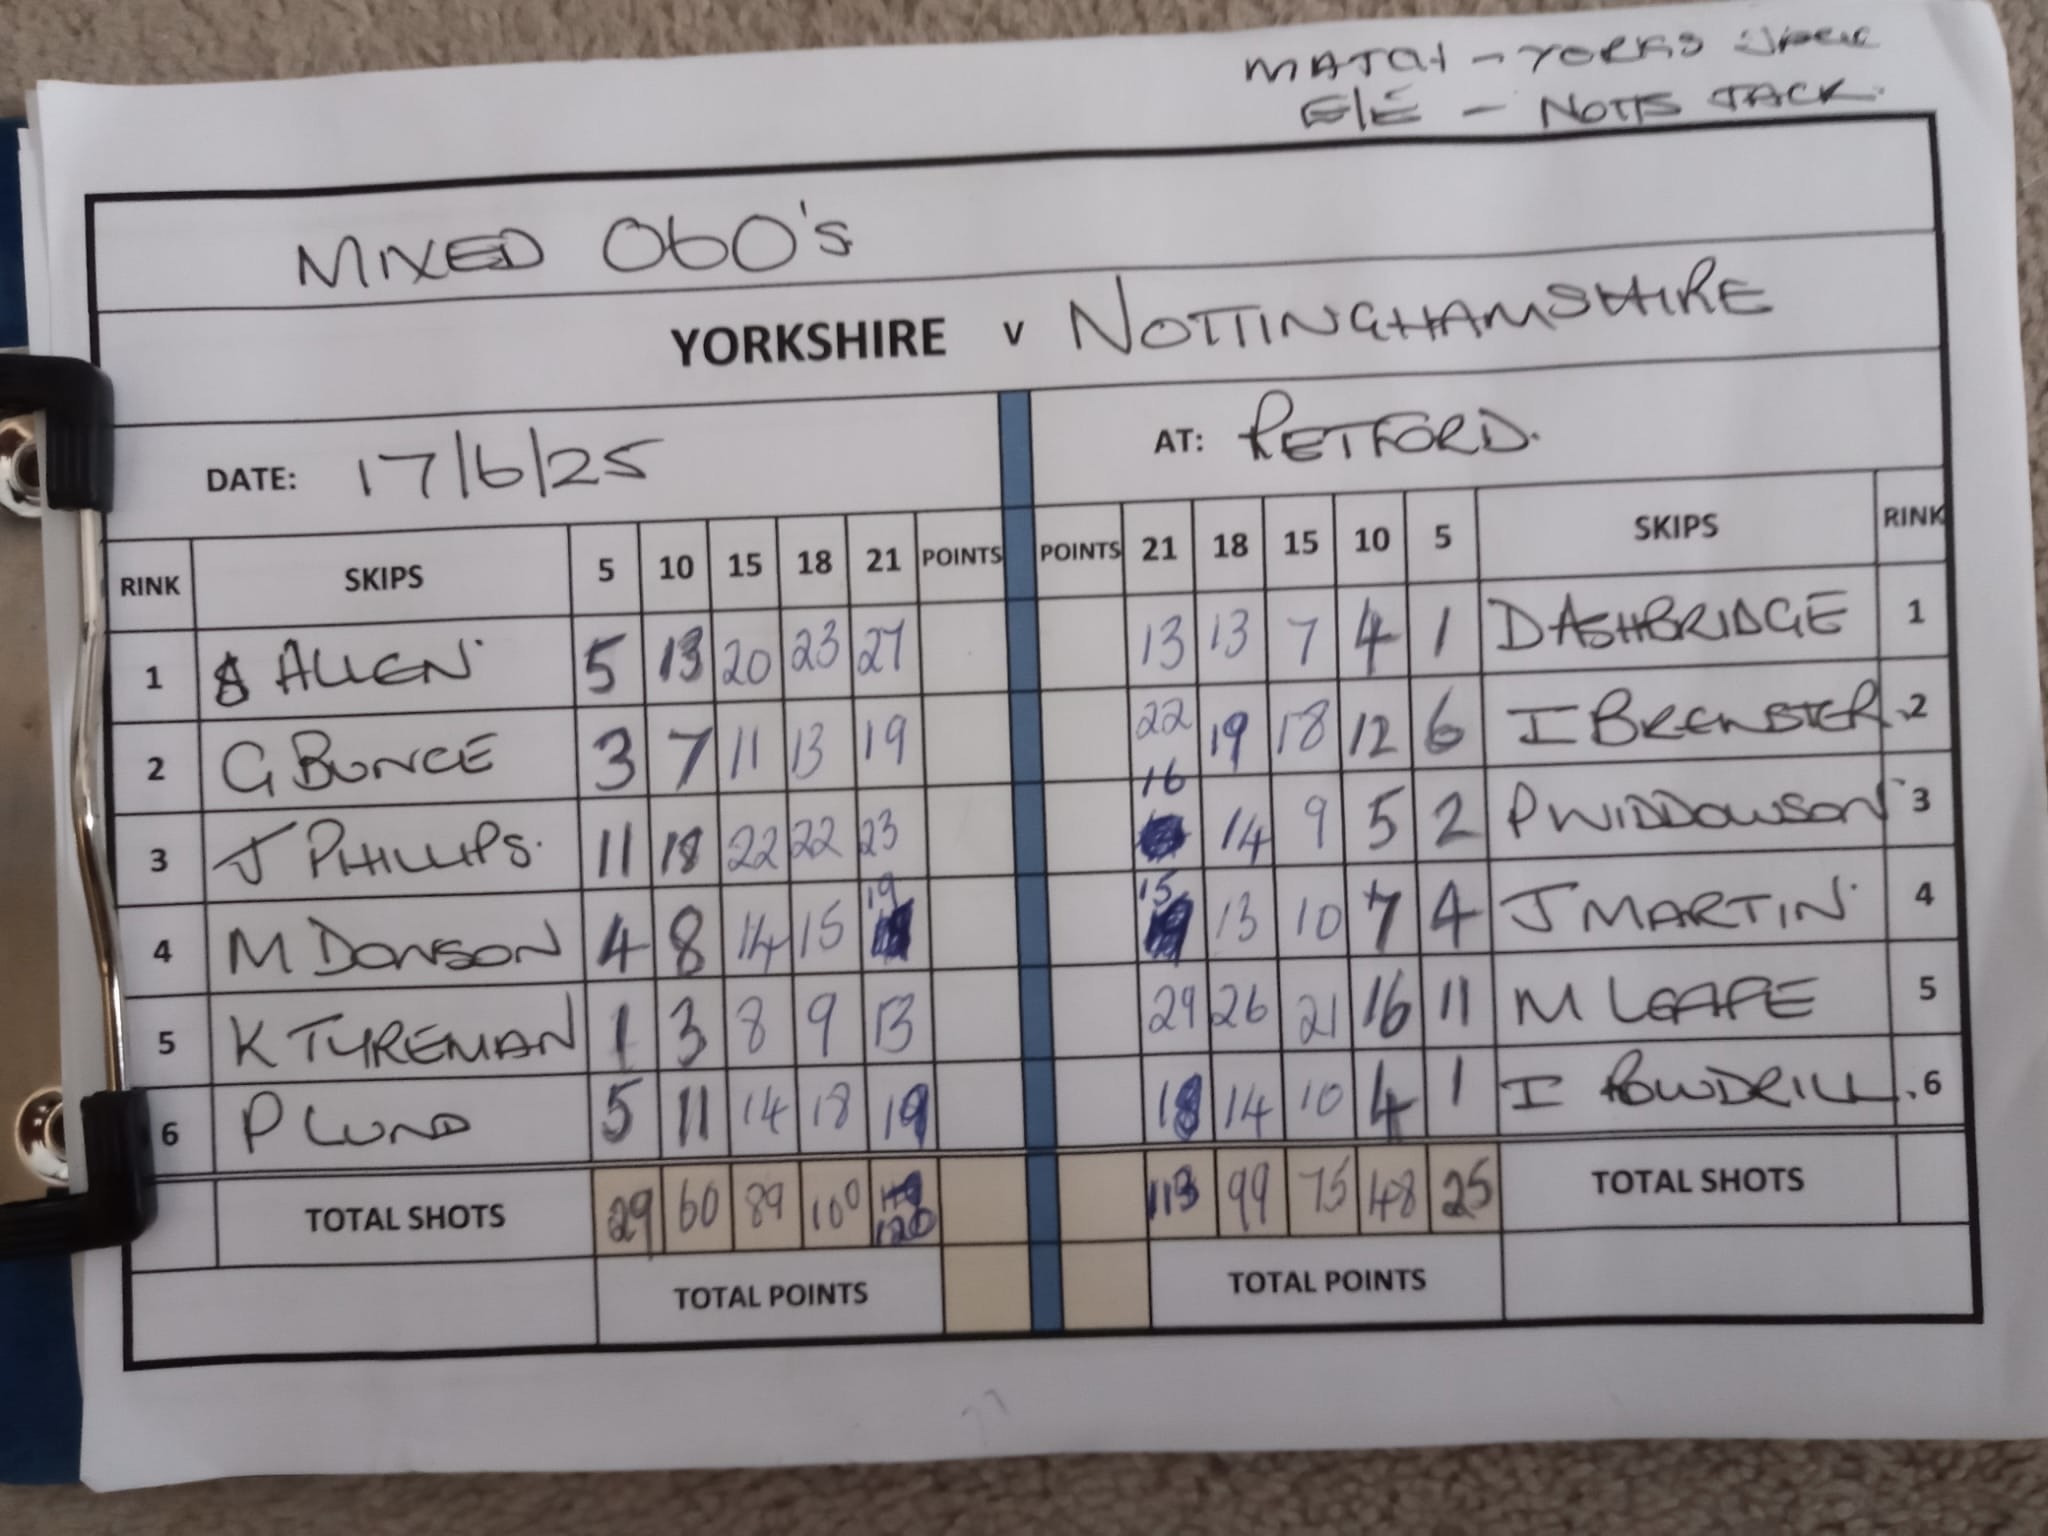 MATCH - YORKS JACK
E/E - NOTTS JACK.
MIXED O60's
YORKSHIRE v NOTTINGHAMSHIRE
DATE: 17/6/25 AT: RETFORD.
RINK SKIPS 5 10 15 18 21 POINTS POINTS 21 18 15 10 5 SKIPS RINK
1 S ALLEN 5 13 20 23 27 13 13 7 4 1 D ASHBRIDGE 1
2 G BUNCE 3 7 11 13 19 22 19 18 12 6 I BREWSTER 2
3 J PHILLIPS. 11 18 22 22 23 16 14 9 5 2 P WIDDOWSON 3
4 M DOWSON 4 8 14 15 19 15 13 10 7 4 J MARTIN 4
5 K TYREMAN 1 3 8 9 13 29 26 21 16 11 M LEAPE 5
6 P LUND 5 11 14 18 19 18 14 10 4 1 I POWDRILL 6
TOTAL SHOTS 29 60 89 100 120 113 99 75 48 25 TOTAL SHOTS
TOTAL POINTS TOTAL POINTS